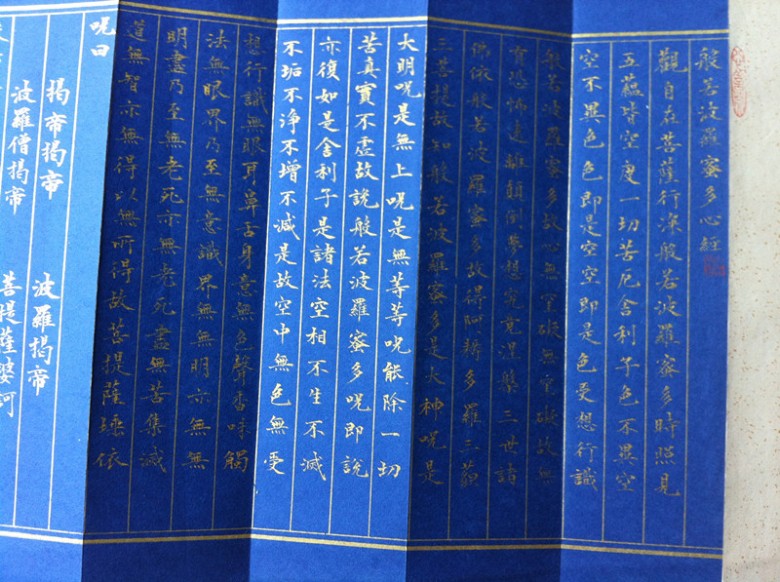 般若波羅蜜多心経
觀自在菩薩行深般若波羅蜜多時照見
五蘊皆空度一切苦厄舍利子色不異空
空不異色色即是空空即是色受想行識
般若波羅蜜多故心無罣礙無罣礙故無
有恐怖遠離顛倒夢想究竟涅槃三世諸
佛依般若波羅蜜多故得阿耨多羅三藐
三菩提故知般若波羅蜜多是大神呪是
大明呪是無上呪是無等等呪能除一切
苦真實不虛故說般若波羅蜜多呪即說
亦復如是舍利子是諸法空相不生不滅
不垢不浄不增不減是故空中無色無受
想行識無眼耳鼻舌身意無色聲香味觸
法無眼界乃至無意識界無無明亦無無
明盡乃至無老死亦無老死盡無苦集滅
道無智亦無得以無所得故菩提薩埵依
呪曰
揭帝揭帝 波羅揭帝
波羅僧揭帝 菩提薩婆訶